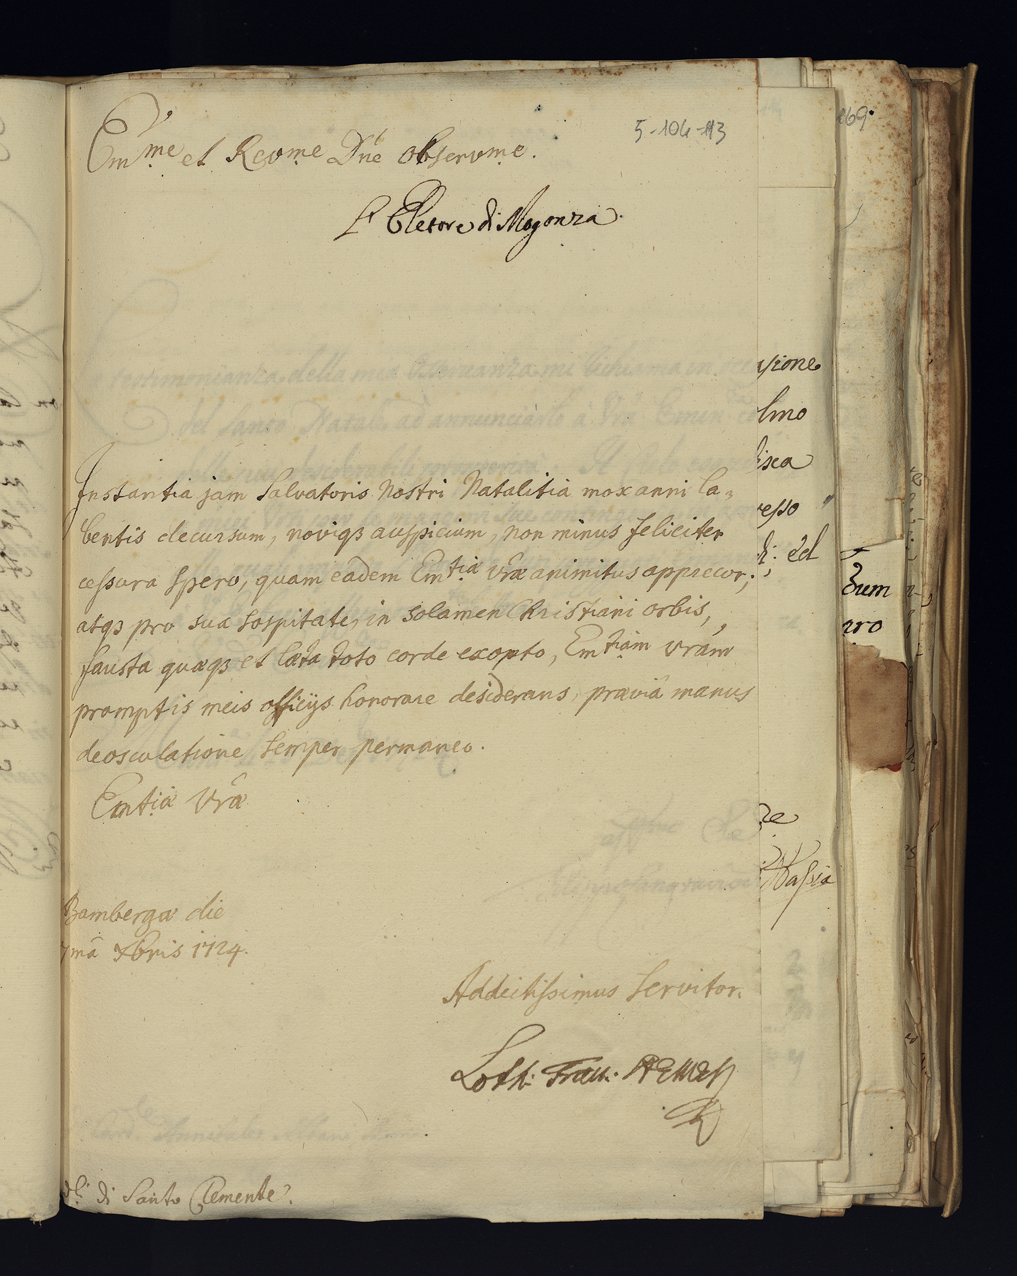 5-104-113
Em.me et Reŭme Dn̄e obserŭme.
L' Eletore di Magonza.
Instantia jam Salvatoris Nostri Natalitia mox anni la=
bentis decursum, noviq3 auspicium, non minus feliciter
cessura spero, quam eadem Em.tiæ Vræ animitus apprecor;
atq3 pro sua sospitate, in solamen Christiani orbis,
fausta quæq3 et læta toto corde exopto, Emtiam Vrãm
promptis meis officijs honorare desiderans, præviâ manus
deosculatione semper permaneo.
Emtiæ Vræ
Bambergæ die
7mã Xbris 1724.
Addictissimus Servitor.
Loth: Fran:
di Santo Clemente.
169.
sione
lmo
esso
di; ed
zum